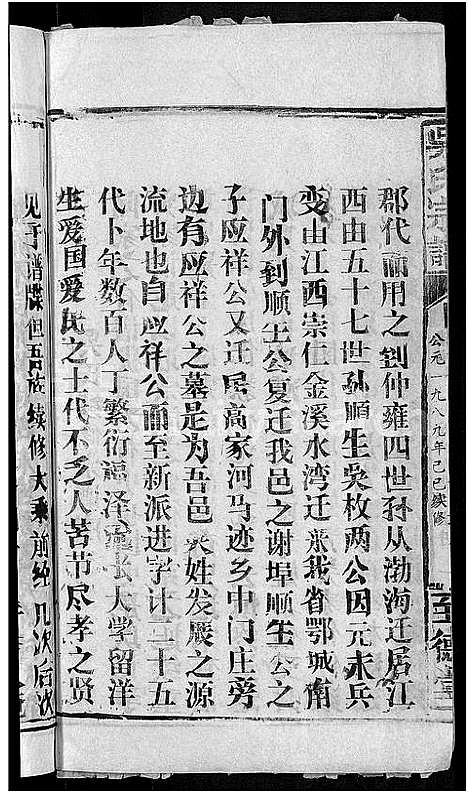 吴氏宗谱
公元一九八九年己巳续修
至德堂
郡代而用之到仲雍四世孙从渤海迁居江
西由五十七世孙顺生吳枚两公因元末兵
变由江西崇仁金溪水湾迁 我省鄂城南
门外到顺生公复迁我邑之谢埠顺生公之
子应祥公又迁居高家河马迹乡中门庄旁
边有应祥公之墓是为吾邑吴姓发展之源
流地也自应祥公而至新派进字计二十五
代卜年数百人丁繁衍福泽 长大学留洋
生爱国爱民之士代不乏人苦节尽孝之贤
见于谱牒但吾族续修大乘前经几次后次